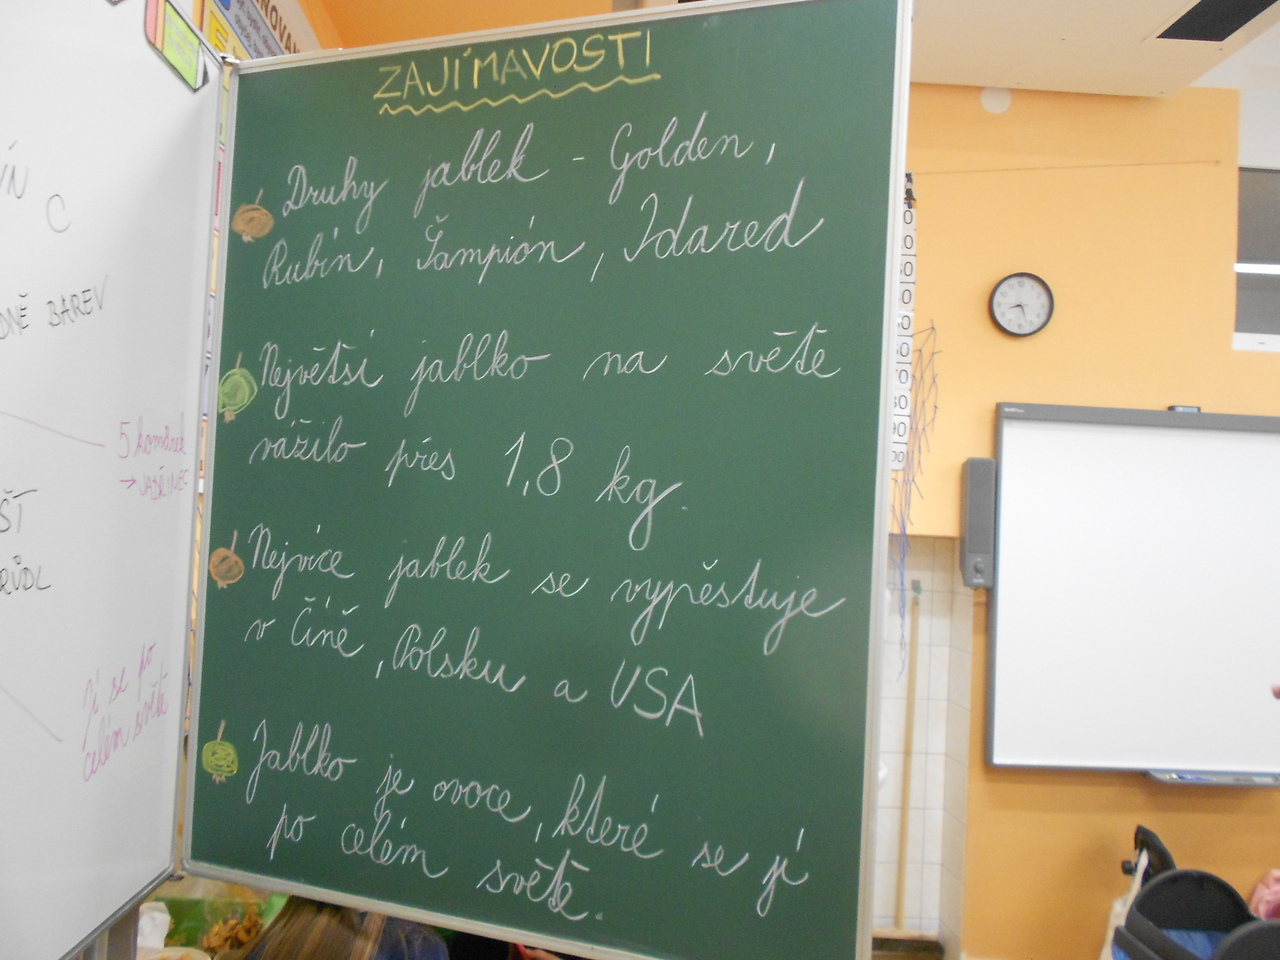 ZAJÍMAVOSTI
Druhy jablek - Golden,
Rubín, Šampión, Idared
Největší jablko na světě
vážilo přes 1,8 kg.
Nejvíce jablek se vypěstuje
v Číně, Polsku a USA
Jablko je ovoce, které se jí
po celém světě.
C
BAREV
5 komůrek
→ JADŘINEC
jí se po
celém světě